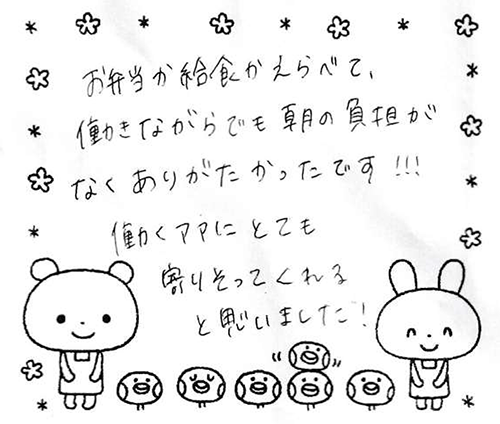 お弁当か給食かえらべて、
働きながらでも朝の負担が
なくありがたかったです!!!
働くママにとても
寄りそってくれる
と思いました!